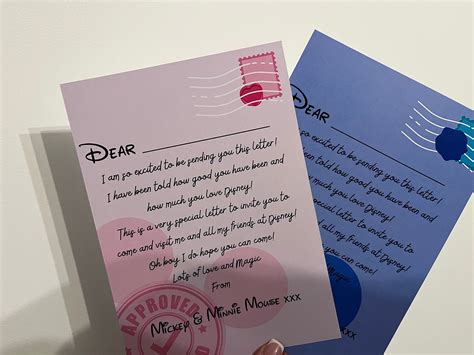 DEAR
I am so excited to be sending you this letter!
I have been told how good you have been and
how much you love Disney!
This is a very special letter to invite you to
come and visit me and all my friends at Disney!
Oh boy I do hope you can come!
Lots of love and Magic
From
MICKEY & MINNIE MOUSE xxx
APPROVED
DEAR
am so excited to be sending you this letter!
been told how good you have been and
much you love Disney!
special letter to invite you to
me and all my friends at Disney!
you can come!
Magic
xxx